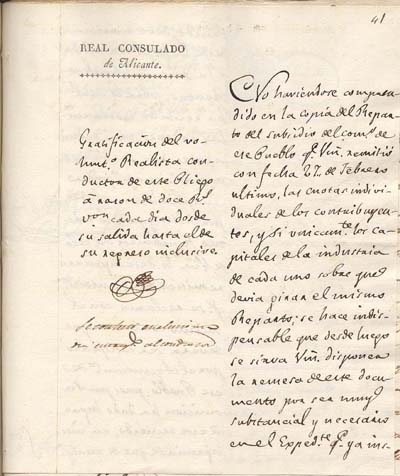 41
REAL CONSULADO
de Alicante.
Gratificacion del vo-
lunt.º Realista con-
ductor de este Pliego
á razon de doce R.s
von cada dia desde
su salida hasta el de
su regreso inclusive.
No haviendose compren-
dido en la copia del Repar-
to del subsidio del com.º de
ese Pueblo q.e Vm. remitió
con fecha 27. de Febrero
ultimo, las cuotas indivi-
duales de los contribuyen-
tes, y si unicam.te los ca-
pitales de la industria
de cada uno sobre que
devia girar el mismo
Reparto; se hace indis-
pensable que desde luego
se sirva Vm. disponer
la remesa de este docu-
mento por ser muy
substancial y necesario
en el Exped.te q.e ya ins-